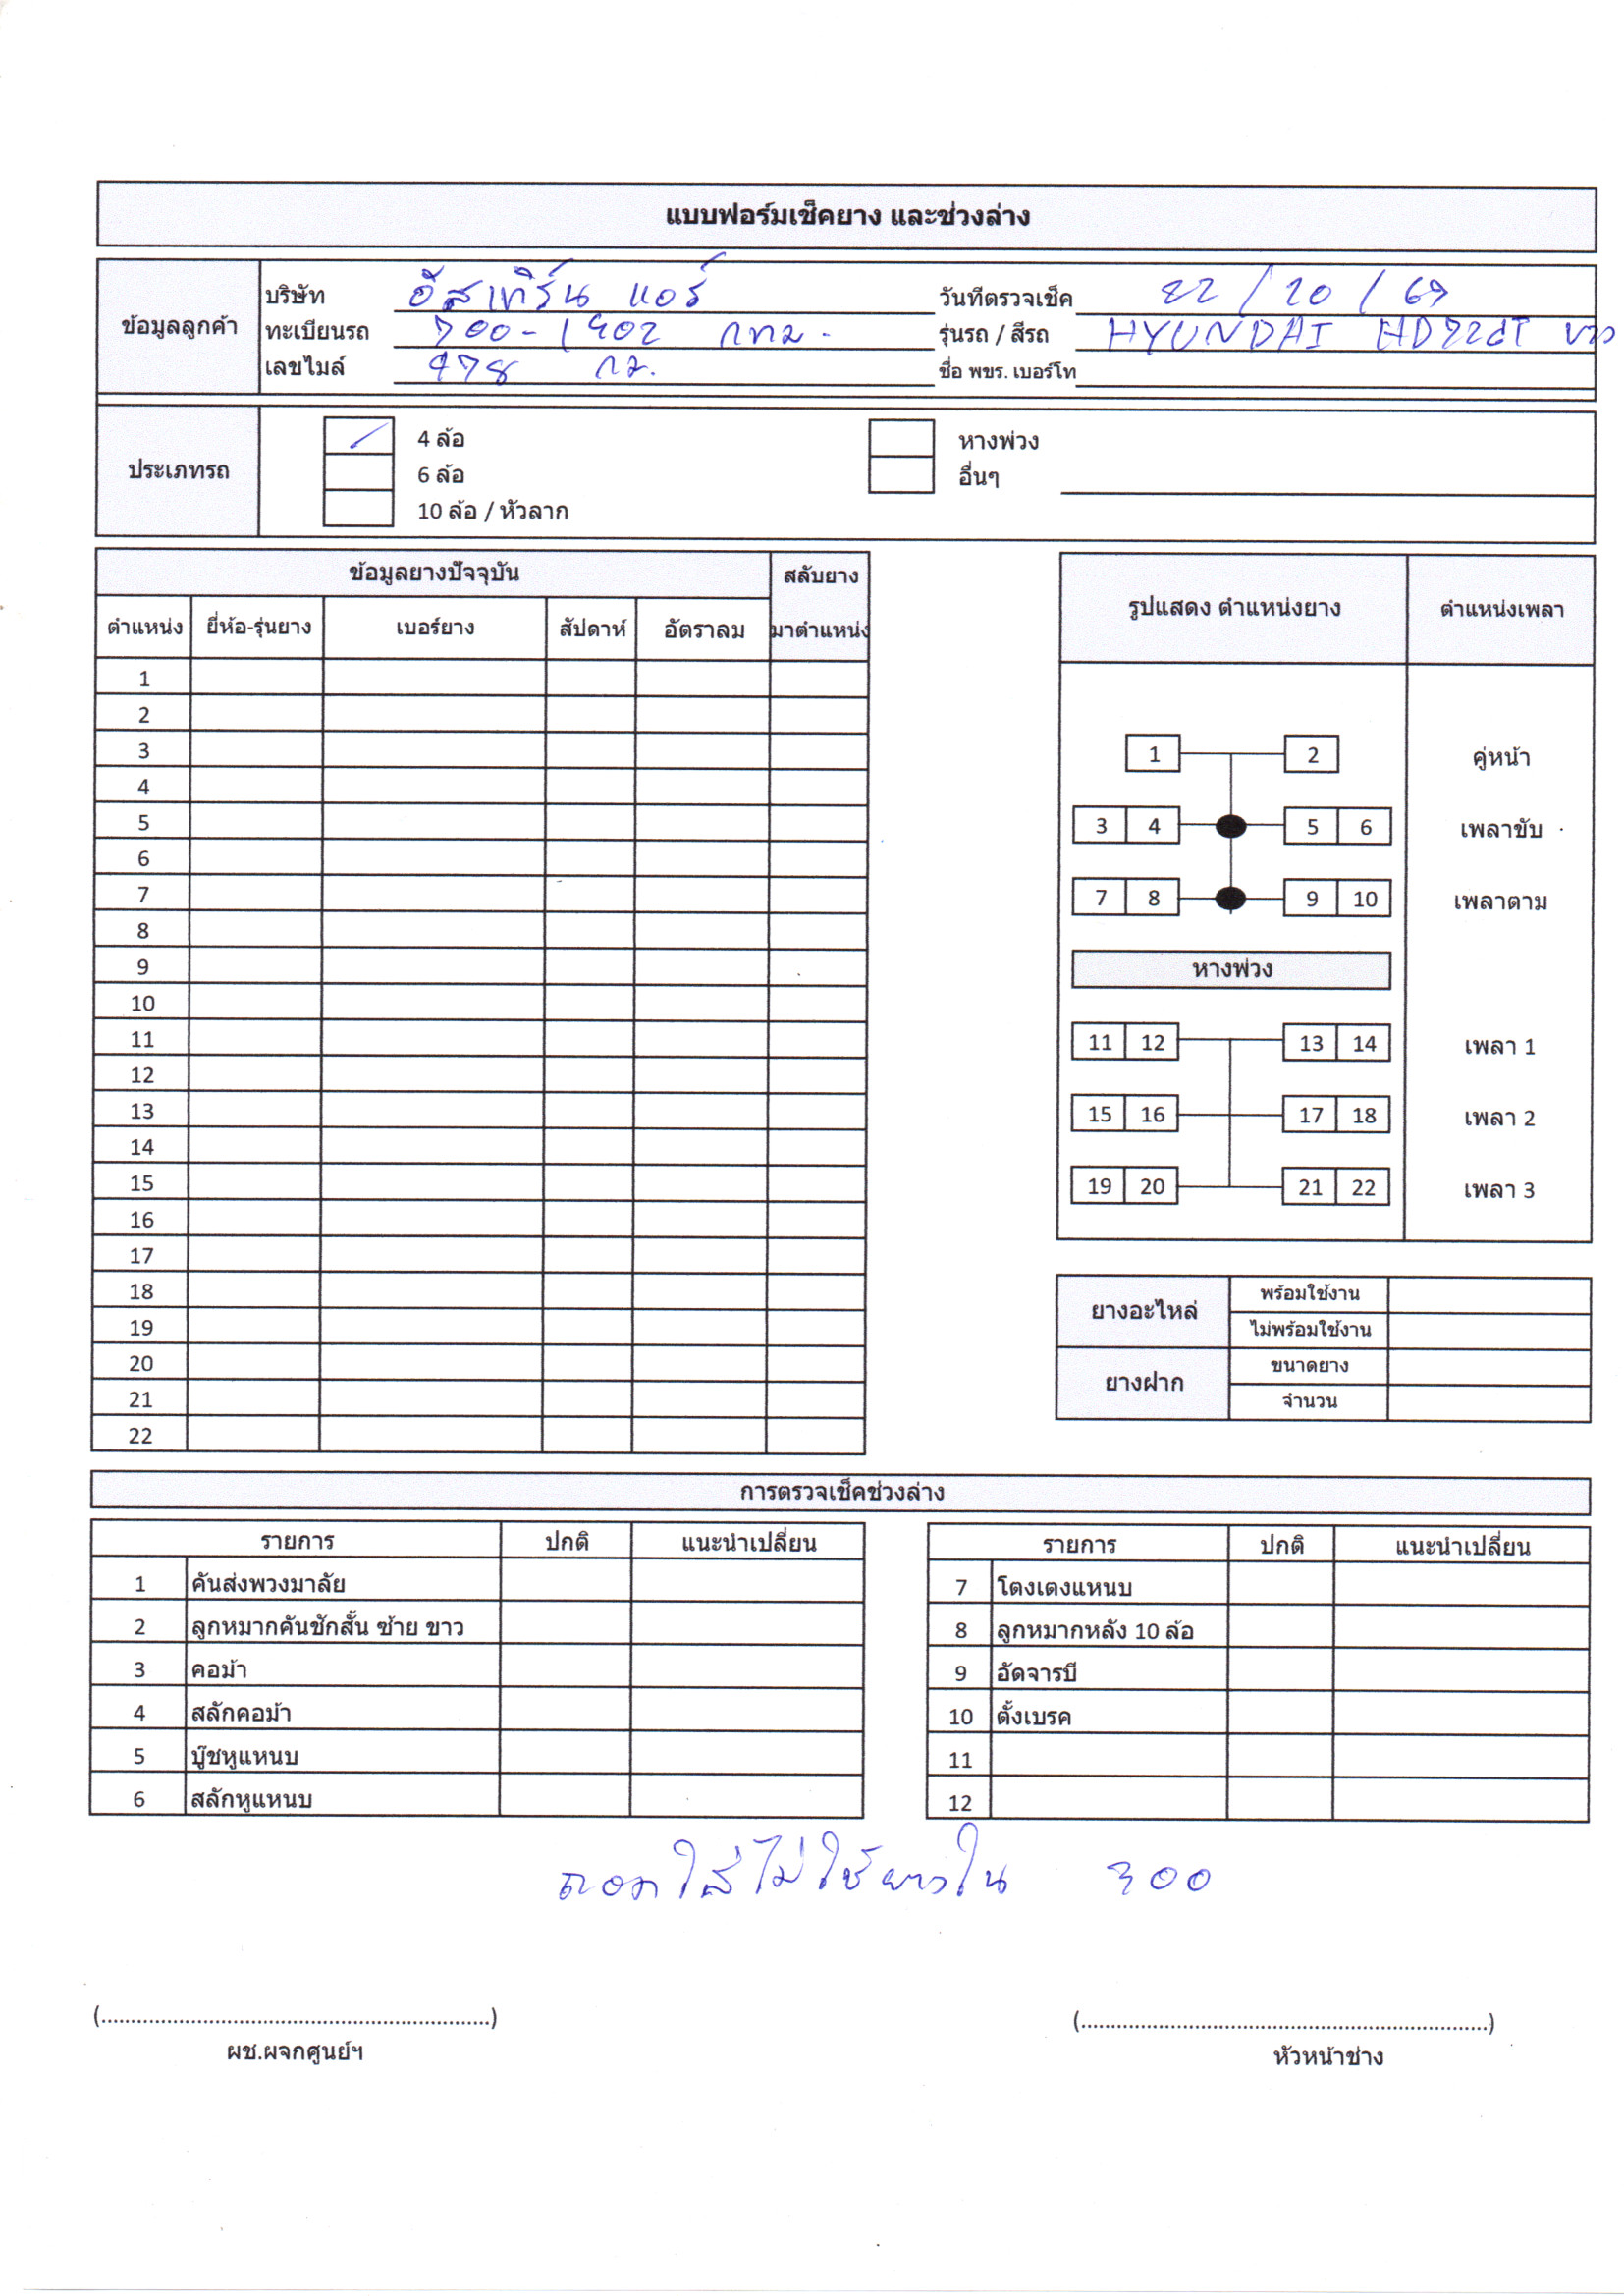 แบบฟอร์มเช็คยาง และช่วงล่าง
ข้อมูลลูกค้า
บริษัท อีสเทิร์น แอร์ วันที่ตรวจเช็ค 22 / 10 / 69
ทะเบียนรถ 700-1902 กทม. รุ่นรถ / สีรถ HYUNDAI HD72dT
เลขไมล์ 478 กม. ชื่อ พขร. เบอร์โท
ประเภทรถ
4 ล้อ หางพ่วง
6 ล้อ อื่นๆ
10 ล้อ / หัวลาก
ข้อมูลยางปัจจุบัน สลับยาง
ตำแหน่ง ยี่ห้อ-รุ่นยาง เบอร์ยาง สัปดาห์ อัตราลม มาตำแหน่ง
1
2
3
4
5
6
7
8
9
10
11
12
13
14
15
16
17
18
19
20
21
22
รูปแสดง ตำแหน่งยาง ตำแหน่งเพลา
1 2 คู่หน้า
3 4 5 6 เพลาขับ
7 8 9 10 เพลาตาม
หางพ่วง
11 12 13 14 เพลา 1
15 16 17 18 เพลา 2
19 20 21 22 เพลา 3
ยางอะไหล่ พร้อมใช้งาน
ไม่พร้อมใช้งาน
ยางฝาก ขนาดยาง
จำนวน
การตรวจเช็คช่วงล่าง
รายการ ปกติ แนะนำเปลี่ยน
1 คันส่งพวงมาลัย
2 ลูกหมากคันชักสั้น ซ้าย ขาว
3 คอม้า
4 สลักคอม้า
5 บู๊ชหูแหนบ
6 สลักหูแหนบ
รายการ ปกติ แนะนำเปลี่ยน
7 โตงเตงแหนบ
8 ลูกหมากหลัง 10 ล้อ
9 อัดจารบี
10 ตั้งเบรค
11
12
ถอดใส่ไม่ใช้ยางใน 300
(..................................................................) (......................................................................)
ผช.ผจกศูนย์ฯ หัวหน้าช่าง